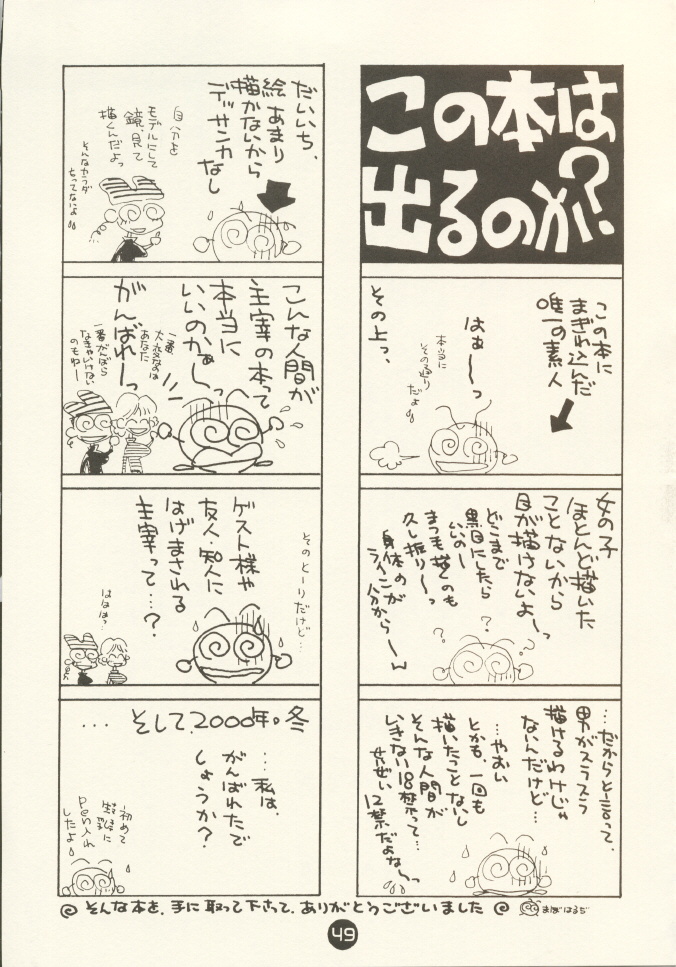 この本は
出るのか?
この本に
まぎれ込んだ
唯一の素人
はぁ〜〜っ
本当に
その通り
だよ
その上っ、
女の子
ほとんど描いた
ことないから
目が描けないよーっ
どこまで
黒目にしたら
いいのー
まつ毛描くのも
久し振り〜っ
身体の
ラインが
分から〜ん
?
?
?
…だからと言って、
男がスラスラ
描けるわけじゃ
ないんだけど…
…やおい
とかも、一回も
描いたことないし
そんな人間が
いきない18禁って…
せぜい
12禁だよな〜っ
だいいち、
絵あまり
描かないから
デッサン力
なし
自分を
モデルにして
鏡見て
描くんだよっ
そんなカラダ
もってないよ
こんな人間が
主宰の本って
本当に
いいのかぁ〜っ
がんばれーっ
一番
大変なのは
あなた
一番がんばら
なきゃいけない
のもねー
そのとーりだけど…
ゲスト様や
友人・知人に
はげまされる
主宰って…?
ははは?
そして、2000年。冬
…
…私は、
がんばれたで
しょうか?
初めて
Pen入れ
したよ
そんな本を、手に取って下さって、ありがとうございました
まぼはるぢ
49